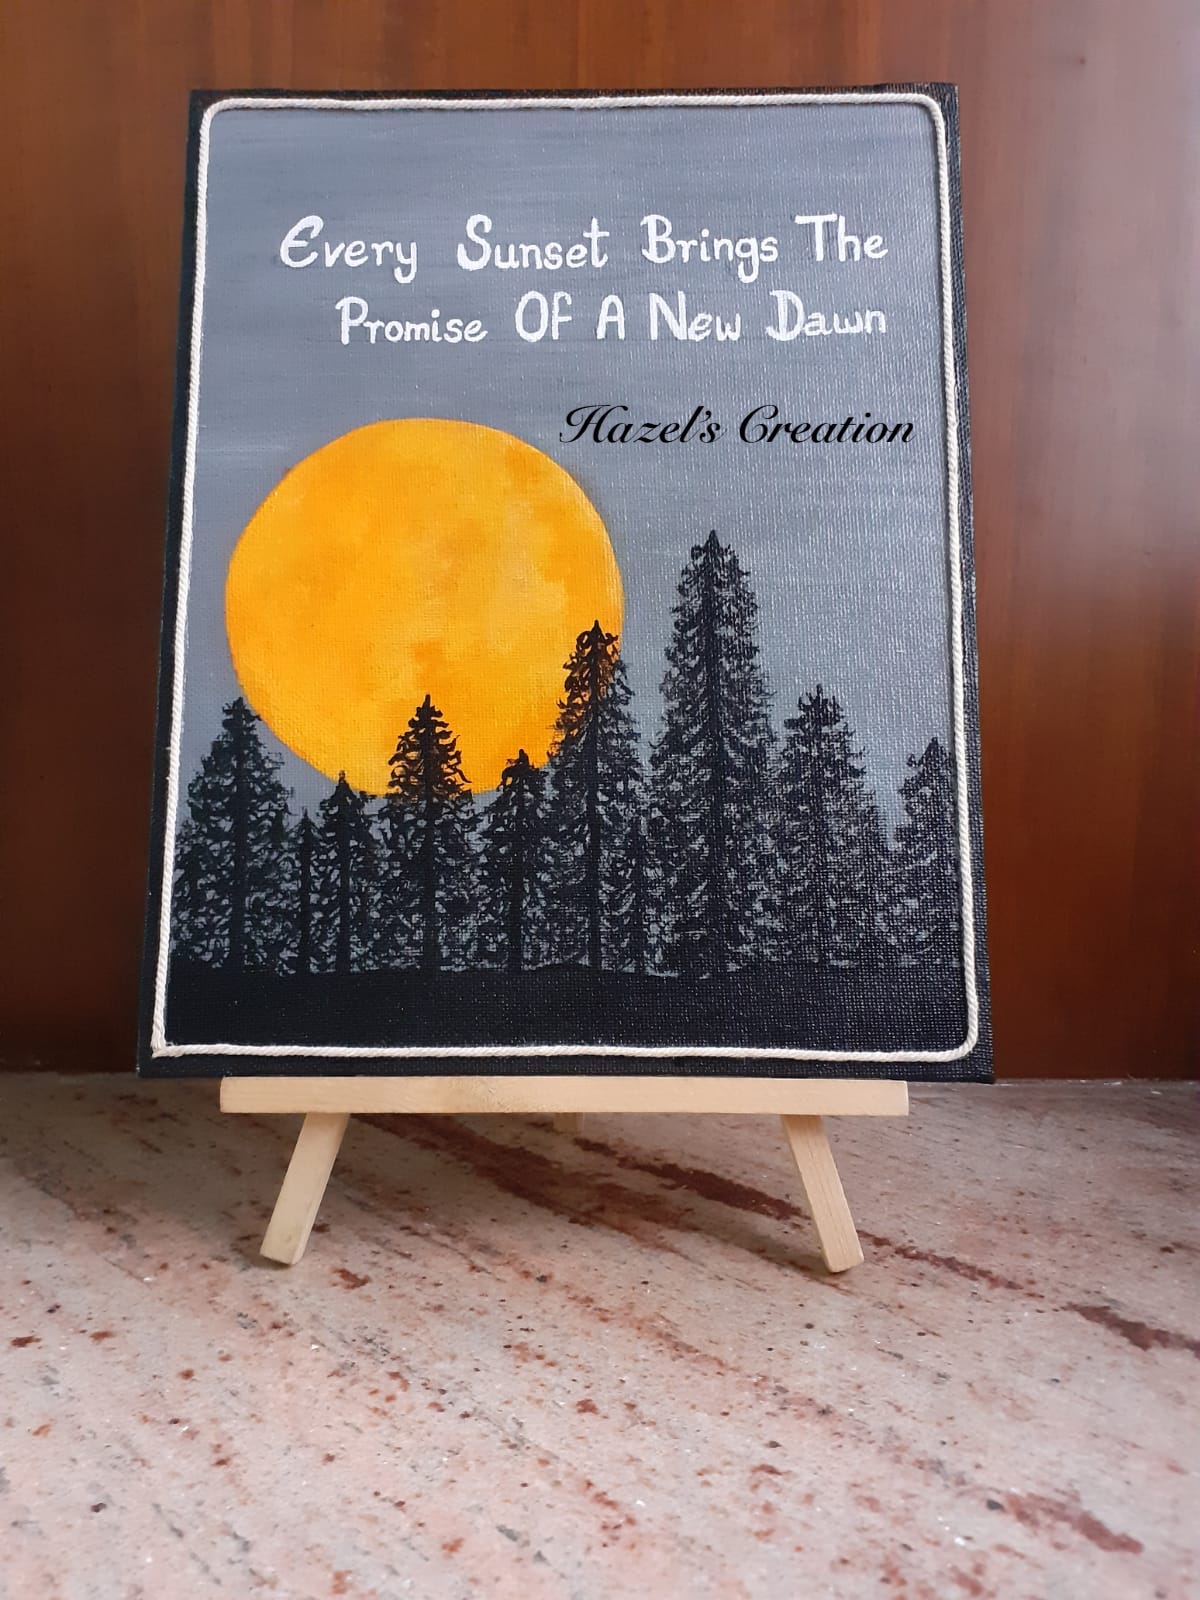 Every Sunset Brings The
Promise OF A New Dawn
Hazel's Creation